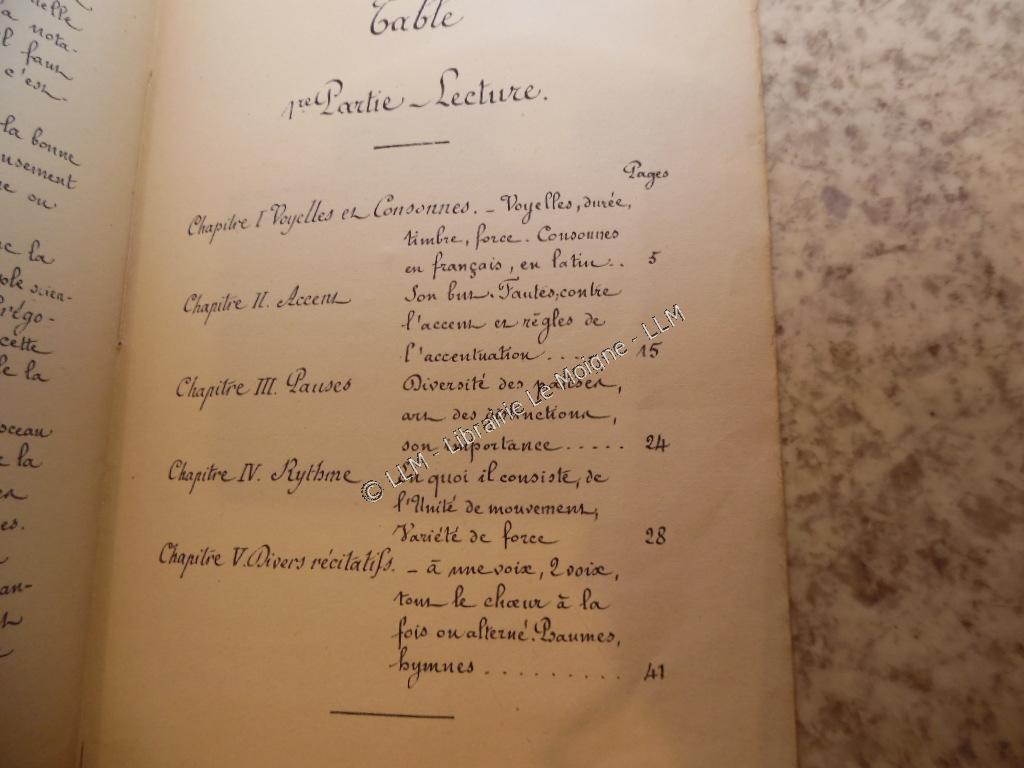 uelle
a nota-
l faut
c'est
la bonne
usement
e ou
la
ole scien-
Grégo-
cette
le la
oceau
la
es.
an-
Table
1re Partie - Lecture.
Pages
Chapitre I Voyelles et Consonnes. - Voyelles, durée,
timbre, force. Consonnes
en français, en latin.. 5
Chapitre II. Accent Son but. Fautes contre
l'accent et règles de
l'accentuation.... 15
Chapitre III. Pauses Diversité des pauses,
art des distinctions,
son importance..... 24
Chapitre IV. Rythme En quoi il consiste, de
l'Unité de mouvement,
Variété de force 28
Chapitre V. Divers récitatifs. - à une voix, 2 voix,
tout le chœur à la
fois ou alterné. Psaumes,
hymnes......... 41
© LLM - Librairie Le Moigne - LLM